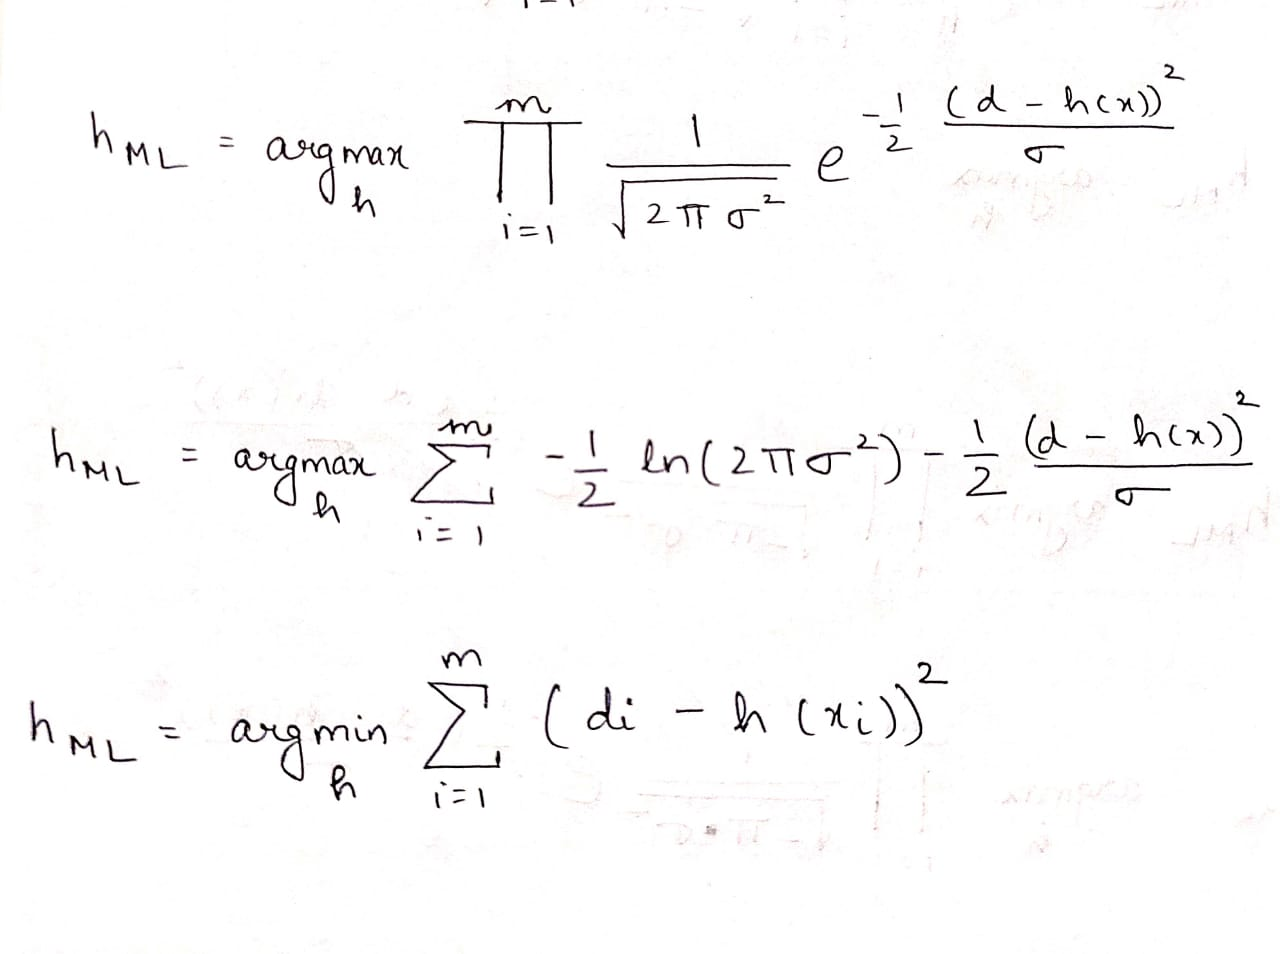 h_ML = argmax_h ∏_{i=1}^{m} 1/√(2πσ²) e^{-1/2 (d - h(x))²/σ}
h_ML = argmax_h ∑_{i=1}^{m} -1/2 ln(2πσ²) - 1/2 (d - h(x))²/σ
h_ML = argmin_h ∑_{i=1}^{m} (di - h(xi))²